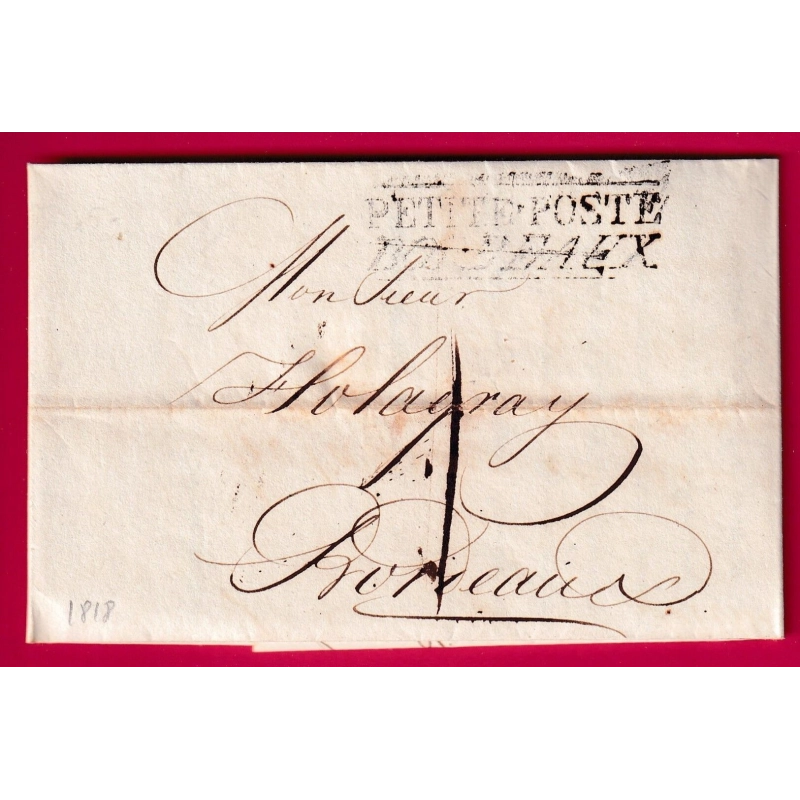 PETITE·POSTE
BORDEAUX
Monsieur
Holagray
1
Bordeaux
1818